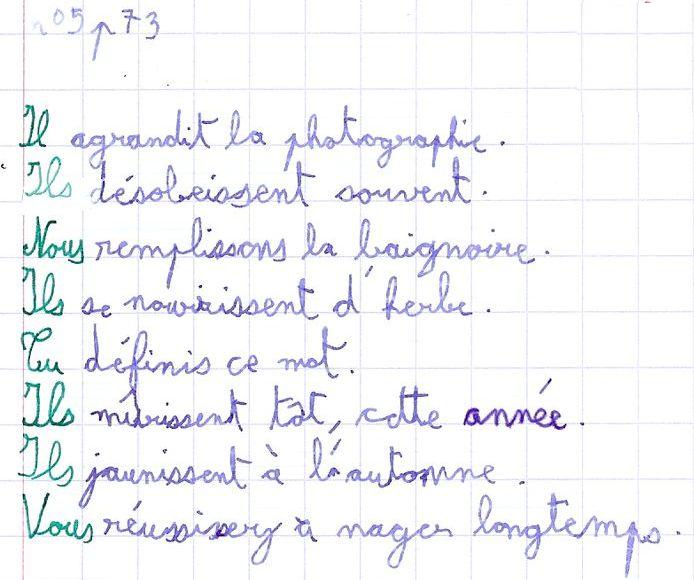 n°5 p73
Il agrandit la photographie.
Ils désobeissent souvent.
Nous remplissons la baignoire.
Ils se nourissent d'herbe.
Tu définis ce mot.
Ils mûrissent tôt, cette année.
Ils jaunissent à l'automne.
Vous réussissez à nager longtemps.